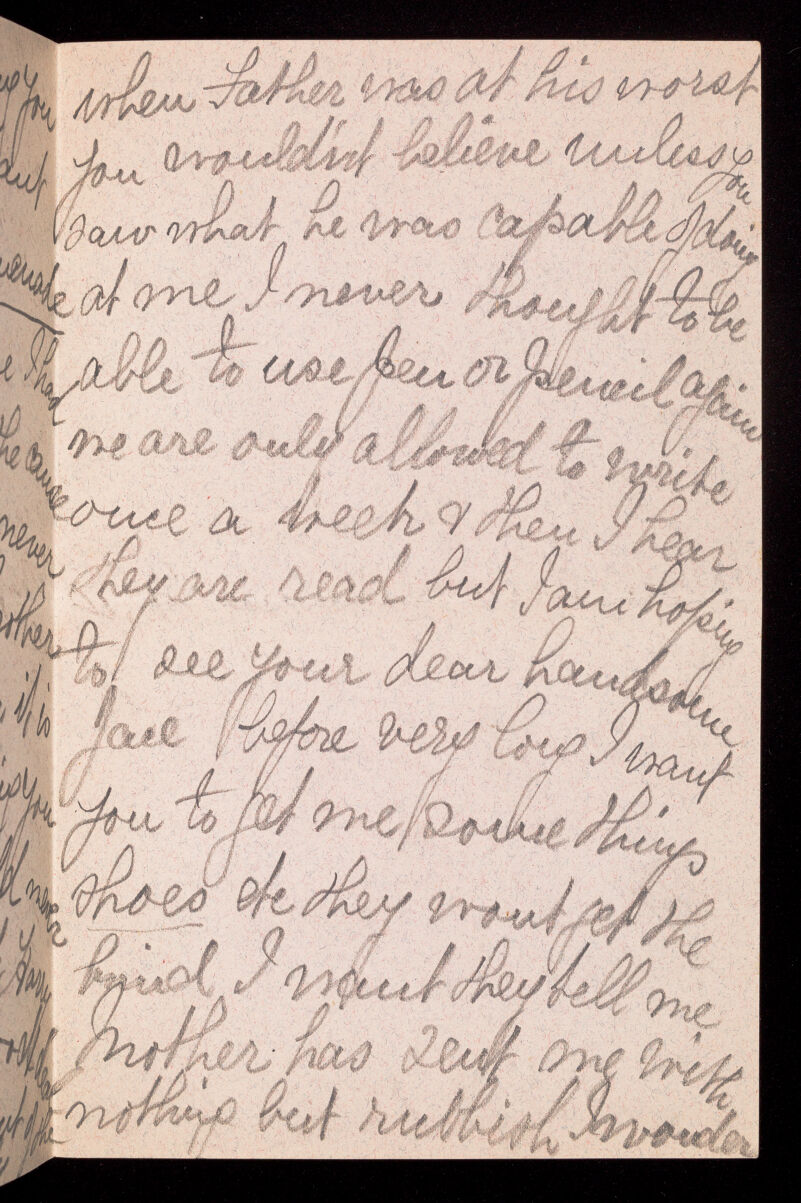 when Father was at his worst
you wouldn't believe unless you
saw what he was capable of doing
at me I never thought to be
able to use pen or pencil again
we are only allowed to write
once a week & then I hear
they are read but I am hoping
to see your dear handsome
face before very long I want
you to get me some things
shoes etc they wont get the
kind I want they tell me
Mother has sent me with
nothing but rubbish I wonder